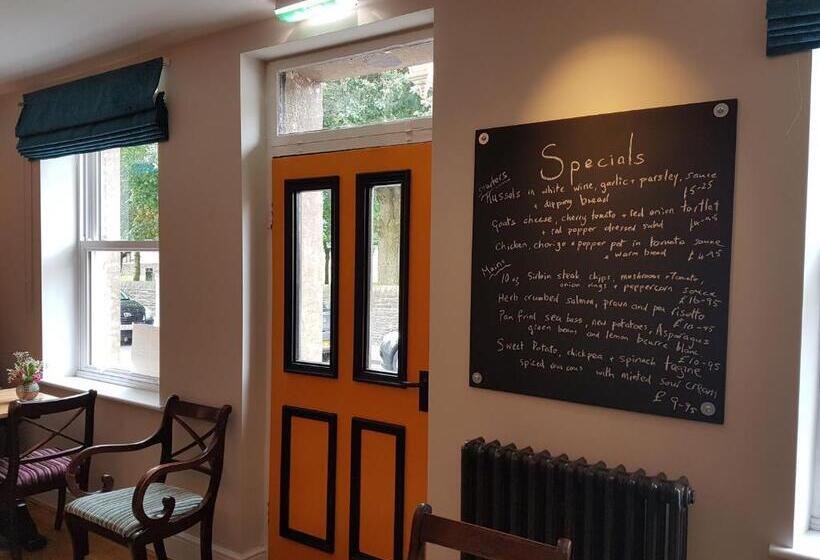 Specials
Starters
Mussels in white wine, garlic + parsley sauce
+ dipping bread £5-25
Goats cheese, cherry tomato + red onion tartlet
+ red pepper dressed salad
Chicken, chorizo + pepper pot in tomato sauce
+ warm bread £4-95
Mains
10oz Sirloin steak chips, mushrooms + tomato,
onion rings + peppercorn sauce
£16-95
Herb crumbed salmon, prawn and pea risotto
£10-95
Pan fried sea bass, new potatoes, Asparagus
green beans and lemon beurre blanc
£10-95
Sweet Potato, chickpea + spinach tagine
spiced cous cous with minted sour cream
£9-95